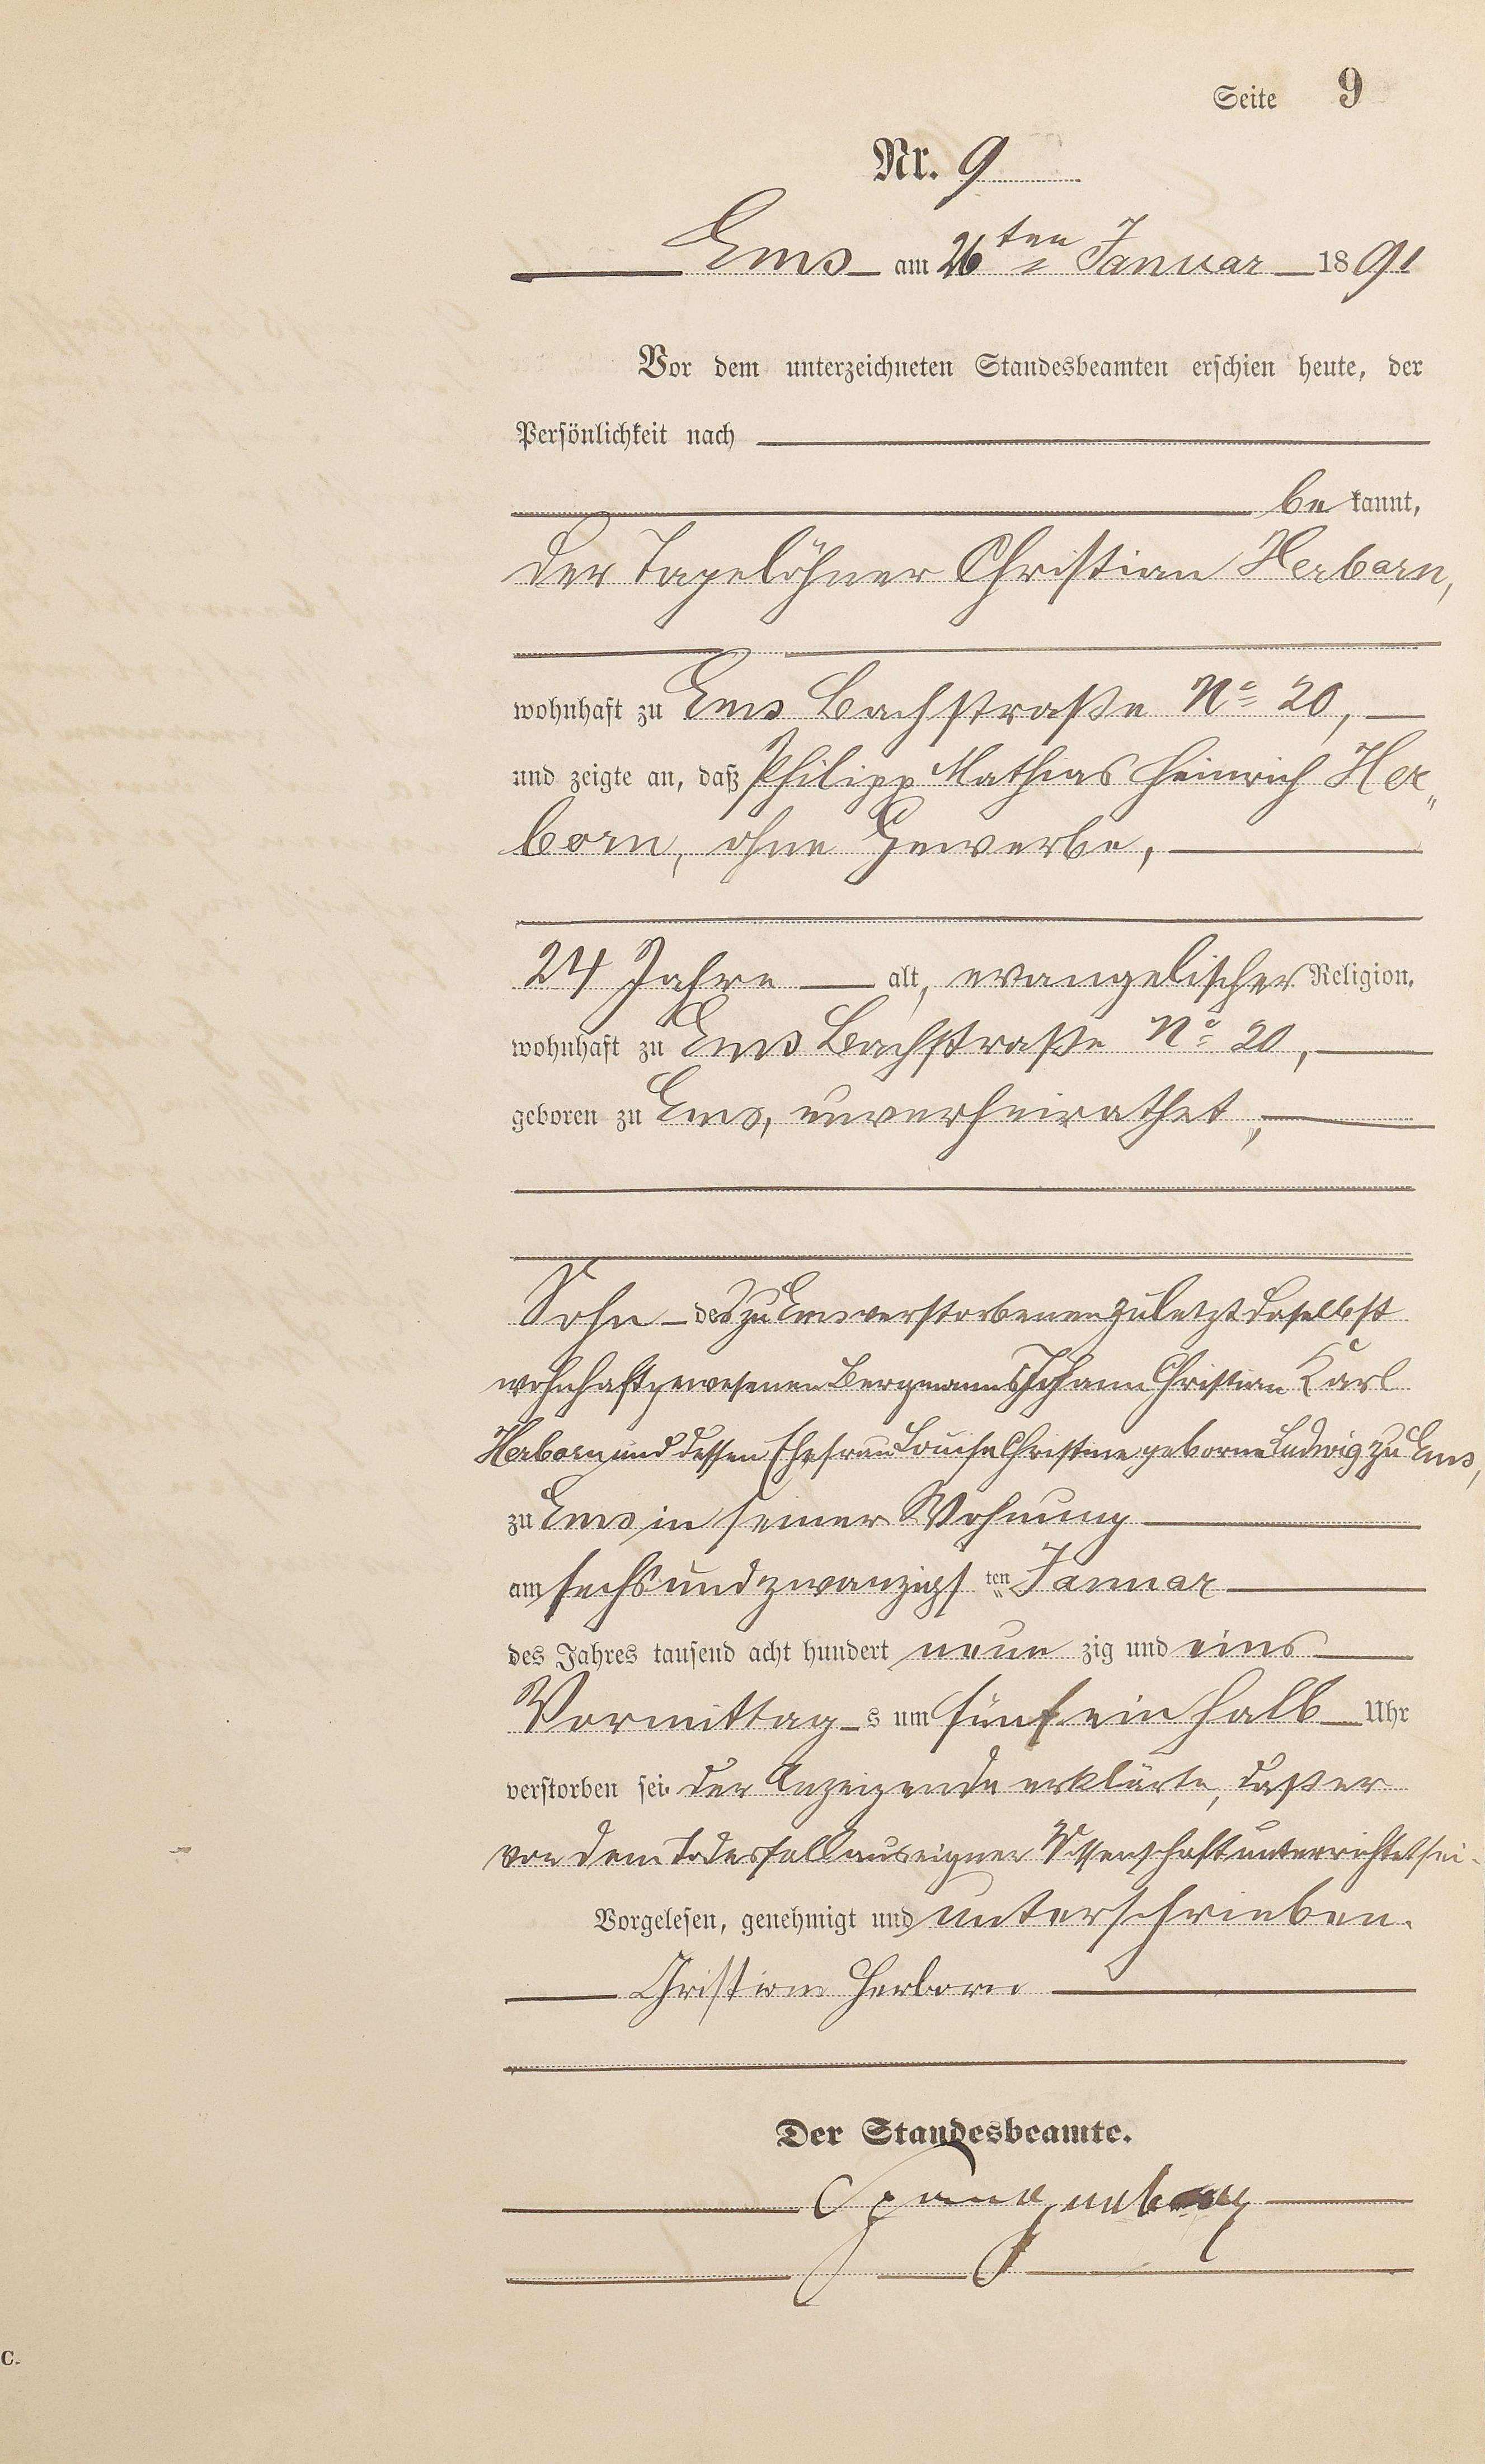 Seite 9
Nr. 9
Ems am 26ten Januar 1891
Vor dem unterzeichneten Standesbeamten erschien heute, der
Persönlichkeit nach
be kannt,
der Tagelöhner Christian Herborn,
wohnhaft zu Ems Bachstraße No 20,
und zeigte an, daß Philipp Mathias Heinrich Her„
born, ohne Gewerbe,
24 Jahre alt, evangelischer Religion,
wohnhaft zu Ems Bachstraße No 20,
geboren zu Ems, unverheirathet,
Sohn des zu Ems verstorbenen zuletzt daselbst
wohnhaft gewesenen Bergmanns Johann Christian Karl
Herborn und dessen Ehefrau Louise Christine geborne Ludwig zu Ems,
zu Ems in seiner Wohnung
am sechsundzwanzigs ten Januar
des Jahres tausend acht hundert neun zig und eins
Vormittag s um fünf ein halb Uhr
verstorben sei. Der Anzeigende erklärte, daß er
von dem Todesfall aus eigner Wissenschaft unterrichtet sei.
Vorgelesen, genehmigt und unterschrieben.
Christian Herborn
Der Standesbeamte.
C.